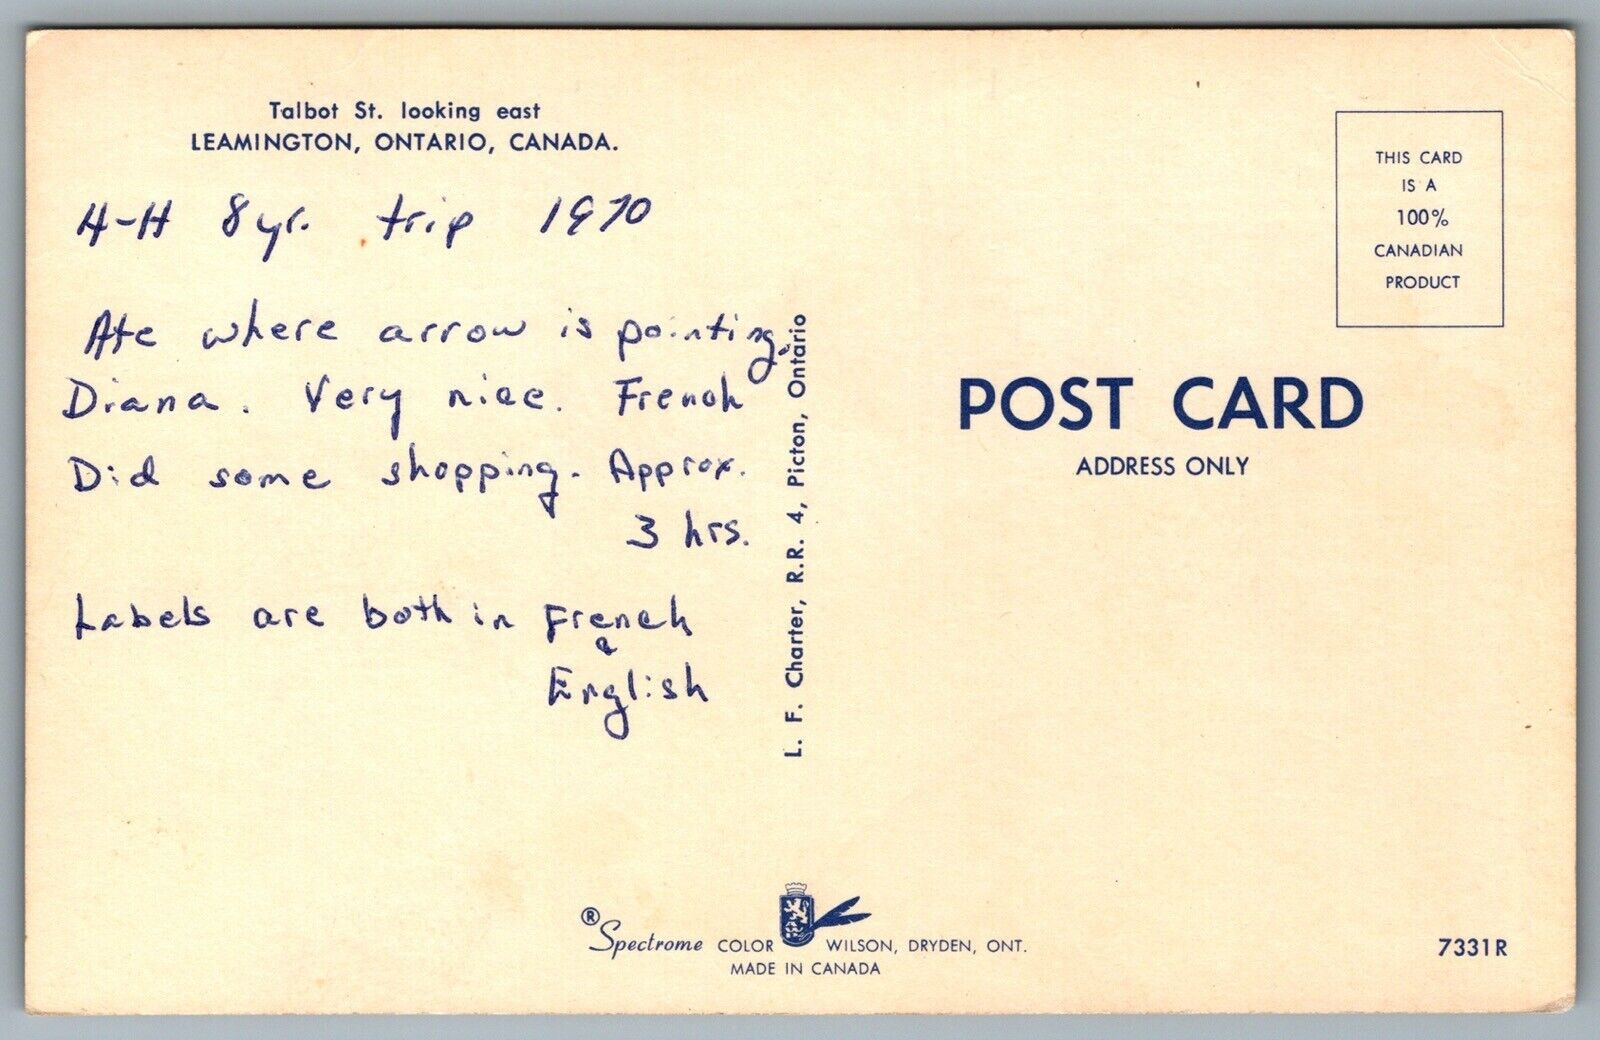 Talbot St. looking east
LEAMINGTON, ONTARIO, CANADA.
H-H 8 yr. trip 1970
Ate where arrow is pointing.
Diana. Very nice. French
Did some shopping. Approx.
3 hrs.
Labels are both in French
&
English
L. F. Charter, R.R. 4, Picton, Ontario
THIS CARD
IS A
100%
CANADIAN
PRODUCT
POST CARD
ADDRESS ONLY
® Spectrome COLOR WILSON, DRYDEN, ONT.
MADE IN CANADA
7331R